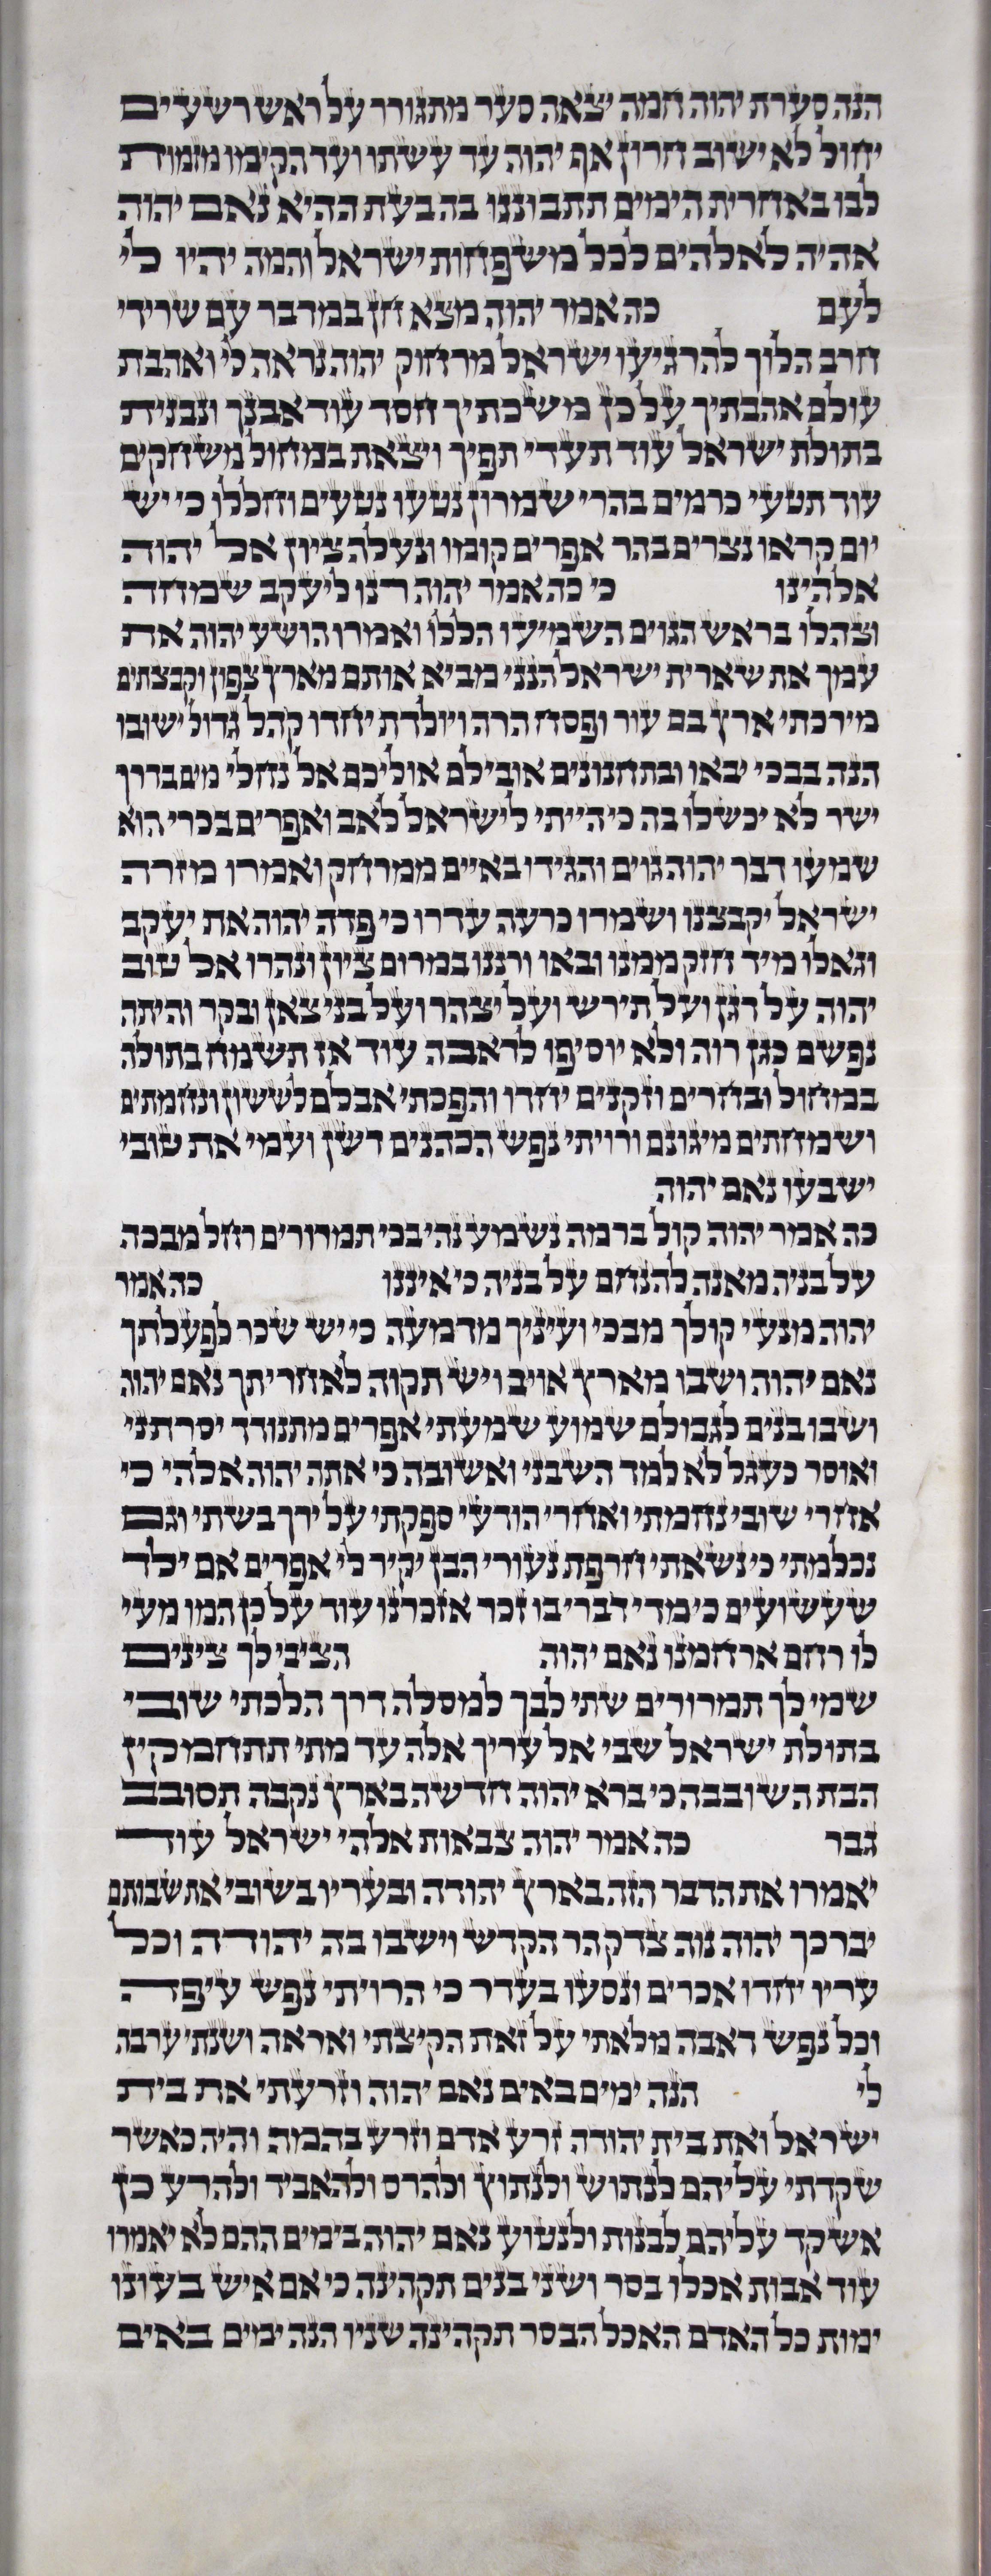 הנה סערת יהוה חמה יצאה סער מתגורר על ראש רשעים
יחול לא ישוב חרון אף יהוה עד עשתו ועד הקימו מזמות
לבו באחרית הימים תתבוננו בה בעת ההיא נאם יהוה
אהיה לאלהים לכל משפחות ישראל והמה יהיו לי
לעם כה אמר יהוה מצא חן במדבר עם שרידי
חרב הלוך להרגיעו ישראל מרחוק יהוה נראה לי ואהבת
עולם אהבתיך על כן משכתיך חסד עוד אבנך ונבנית
בתולת ישראל עוד תעדי תפיך ויצאת במחול משחקים
עוד תטעי כרמים בהרי שמרון נטעו נטעים וחללו כי יש
יום קראו נצרים בהר אפרים קומו ונעלה ציון אל יהוה
אלהינו כי כה אמר יהוה רנו ליעקב שמחה
וצהלו בראש הגוים השמיעו הללו ואמרו הושע יהוה את
עמך את שארית ישראל הנני מביא אותם מארץ צפון וקבצתים
מירכתי ארץ בם עור ופסח הרה ויולדת יחדו קהל גדול ישובו
הנה בבכי יבאו ובתחנונים אובילם אוליכם אל נחלי מים בדרך
ישר לא יכשלו בה כי הייתי לישראל לאב ואפרים בכרי הוא
שמעו דבר יהוה גוים והגידו באיים ממרחק ואמרו מזרה
ישראל יקבצנו ושמרו כרעה עדרו כי פדה יהוה את יעקב
וגאלו מיד חזק ממנו ובאו ורננו במרום ציון ונהרו אל טוב
יהוה על דגן ועל תירש ועל יצהר ועל בני צאן ובקר והיתה
נפשם כגן רוה ולא יוסיפו לדאבה עוד אז תשמח בתולה
במחול ובחרים וזקנים יחדו והפכתי אבלם לששון ונחמתים
ושמחתים מיגונם ורויתי נפש הכהנים דשן ועמי את טובי
ישבעו נאם יהוה
כה אמר יהוה קול ברמה נשמע נהי בכי תמרורים רחל מבכה
על בניה מאנה להנחם על בניה כי איננו כה אמר
יהוה מנעי קולך מבכי ועיניך מדמעה כי יש שכר לפעלתך
נאם יהוה ושבו מארץ אויב ויש תקוה לאחריתך נאם יהוה
ושבו בנים לגבולם שמוע שמעתי אפרים מתנודד יסרתני
ואוסר כעגל לא למד השבני ואשובה כי אתה יהוה אלהי כי
אחרי שובי נחמתי ואחרי הודעי ספקתי על ירך בשתי וגם
נכלמתי כי נשאתי חרפת נעורי הבן יקיר לי אפרים אם ילד
שעשועים כי מדי דברי בו זכר אזכרנו עוד על כן המו מעי
לו רחם ארחמנו נאם יהוה הציבי לך צינים
שמי לך תמרורים שתי לבך למסלה דרך הלכתי שובי
בתולת ישראל שבי אל עריך אלה עד מתי תתחמקין
הבת השובבה כי ברא יהוה חדשה בארץ נקבה תסובב
גבר כה אמר יהוה צבאות אלהי ישראל עוד
יאמרו את הדבר הזה בארץ יהודה ובעריו בשובי את שבותם
יברכך יהוה נוה צדק הר הקדש וישבו בה יהודה וכל
עריו יחדו אכרים ונסעו בעדר כי הרויתי נפש עיפה
וכל נפש דאבה מלאתי על זאת הקיצתי ואראה ושנתי ערבה
לי הנה ימים באים נאם יהוה וזרעתי את בית
ישראל ואת בית יהודה זרע אדם וזרע בהמה והיה כאשר
שקדתי עליהם לנתוש ולנתוץ ולהרס ולהאביד ולהרע כן
אשקד עליהם לבנות ולנטוע נאם יהוה בימים ההם לא יאמרו
עוד אבות אכלו בסר ושני בנים תקהינה כי אם איש בעונו
ימות כל האדם האכל הבסר תקהינה שניו הנה ימים באים